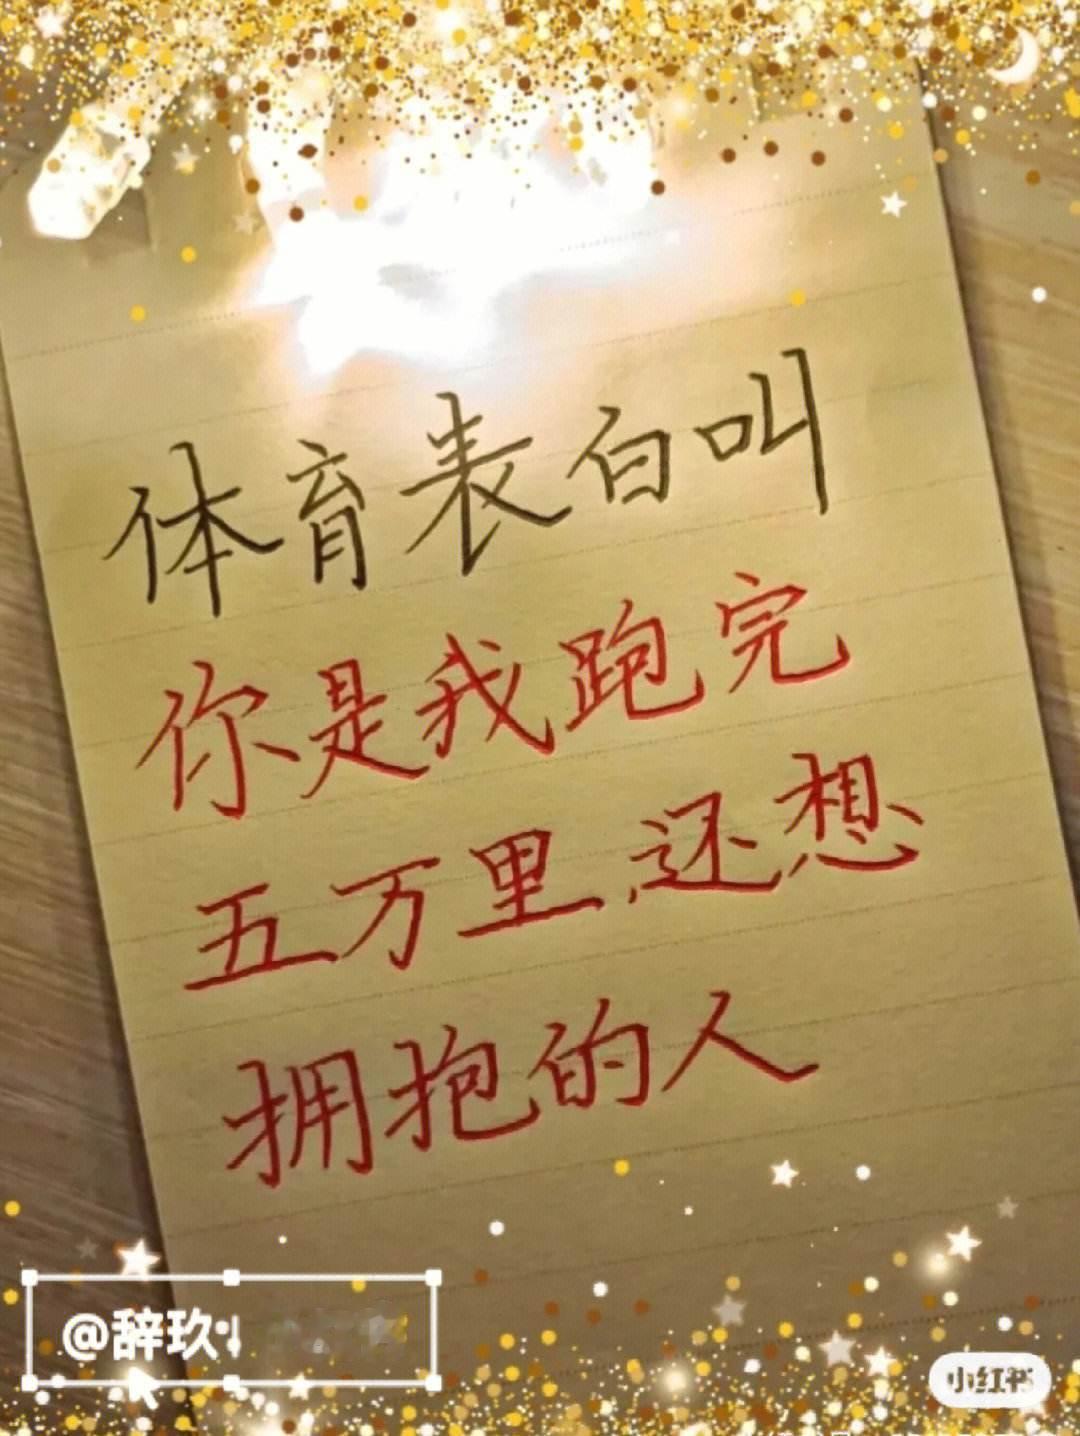 体育表白叫
你是我跑完
五万里,还想
拥抱的人
@辞玖
小红书